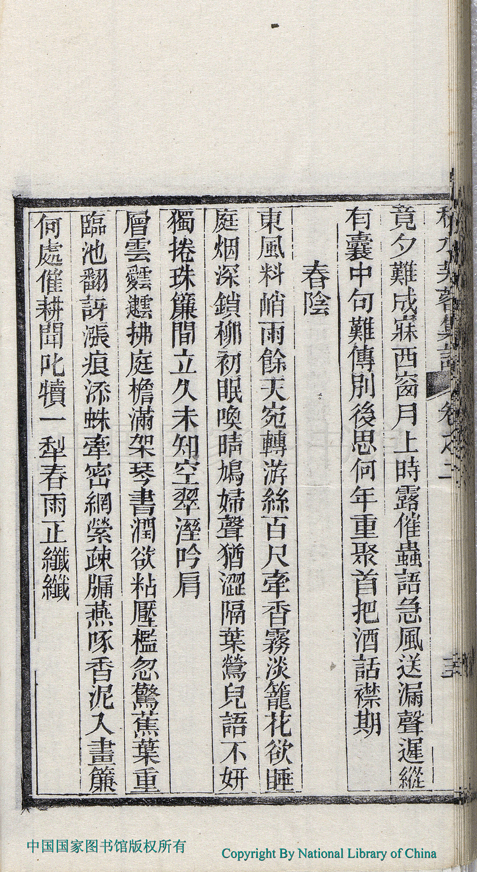 竟夕難成寐西窗月上時露催蟲語急風送漏聲遲縱
有囊中句難傳別後思何年重聚首把酒話襟期
春陰
東風料峭雨餘天宛轉游絲百尺牽香霧淡籠花欲睡
庭烟深鎖柳初眠喚晴鳩婦聲猶澀隔葉鶯兒語不妍
獨捲珠簾閒立久未知空翠溼吟肩
層雲靉靆拂庭檐滿架琴書潤欲粘壓檻忽驚蕉葉重
臨池翻訝漲痕添蛛牽密網縈疎牖燕啄香泥入畫簾
何處催耕聞叱犢一犁春雨正纖纖
中国国家图书馆版权所有
Copyright By National Library of China